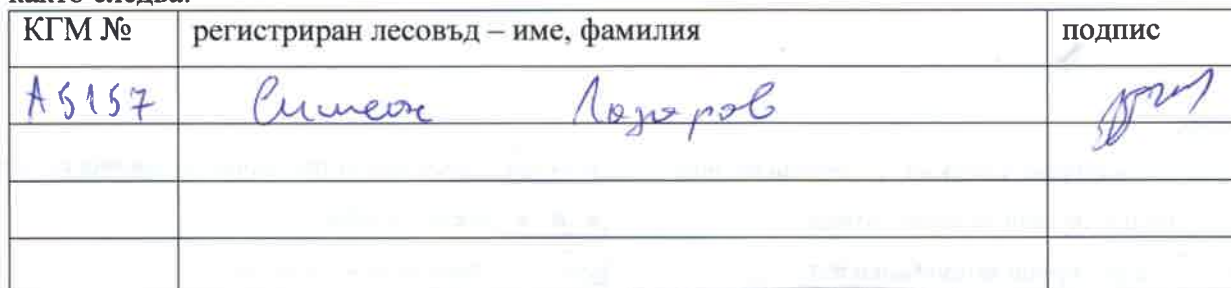 както следва:
КГМ № регистриран лесовъд – име, фамилия подпис
А5157 Симеон Лазаров